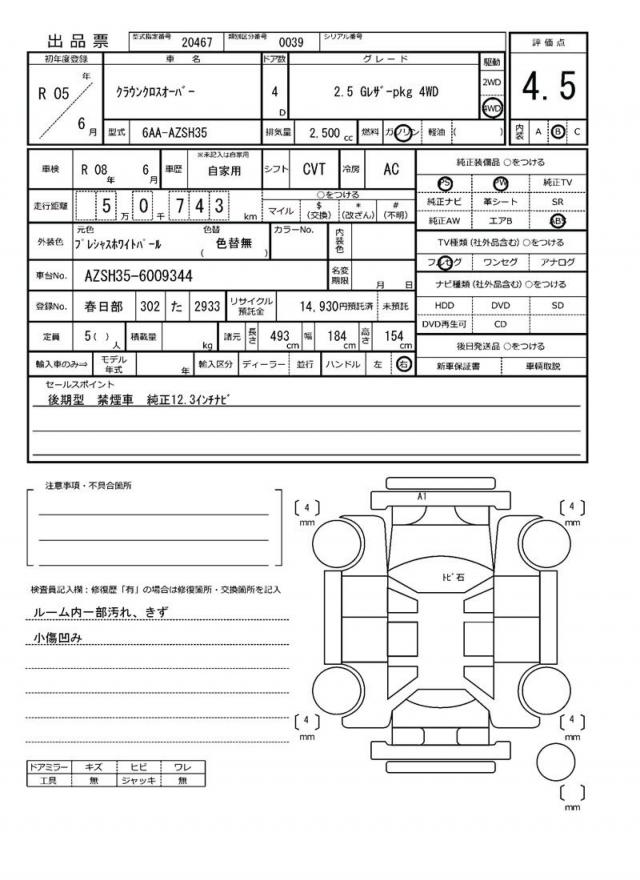 出品票 型式指定番号 20467 類別区分番号 0039 シリアル番号
評価点
4.5
初年度登録 車名 ドア数 グレード 駆動
R 05 年 6 月 クラウンクロスオーバー 4 D 2.5 Gレザーpkg 4WD 2WD 4WD
型式 6AA-AZSH35 排気量 2,500 cc 燃料 ガソリン 軽油 ( ) 内装 A B C
車検 R 08 年 6 月 車歴 ※未記入は自家用 自家用 シフト CVT 冷房 AC
走行距離 5 万 0 千 7 4 3 km
○をつける
マイル $ (交換) * (改ざん) # (不明)
外装色 元色 プレシャスホワイトパール 色替 ( 色替無 ) カラーNo. 内装色
車台No. AZSH35-6009344 名変期限 月 日
登録No. 春日部 302 た 2933 リサイクル預託金 14,930円預託済 未預託
定員 5( ) 人 積載量 kg 諸元 長さ 493 cm 幅 184 cm 高さ 154 cm
輸入車のみ⇒ モデル年式 年 輸入区分 ディーラー 並行 ハンドル 左 右
純正装備品 ○をつける
PS PW 純正TV
純正ナビ 革シート SR
純正AW エアB ABS
TV種類(社外品含む) ○をつける
フルセグ ワンセグ アナログ
ナビ種類(社外品含む) ○をつける
HDD DVD SD
DVD再生可 CD
後日発送品 ○をつける
新車保証書 車輌取説
セールスポイント
後期型 禁煙車 純正12.3インチナビ
注意事項・不具合箇所
検査員記入欄:修復歴「有」の場合は修復箇所・交換箇所を記入
ルーム内一部汚れ、きず
小傷凹み
ドアミラー キズ ヒビ ワレ
工具 無 ジャッキ 無
A1
[ 4 ] mm
[ 4 ] mm
トビ石
[ 4 ] mm
[ 4 ] mm
[ ] mm